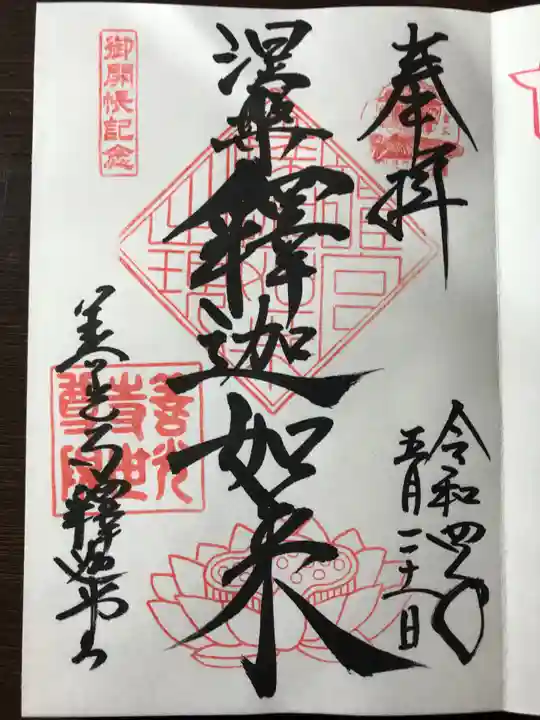 奉拝
令和四年
五月二十一日
涅槃釋迦如来
御開帳記念
善光寺釋迦堂
善光
寺世
尊院